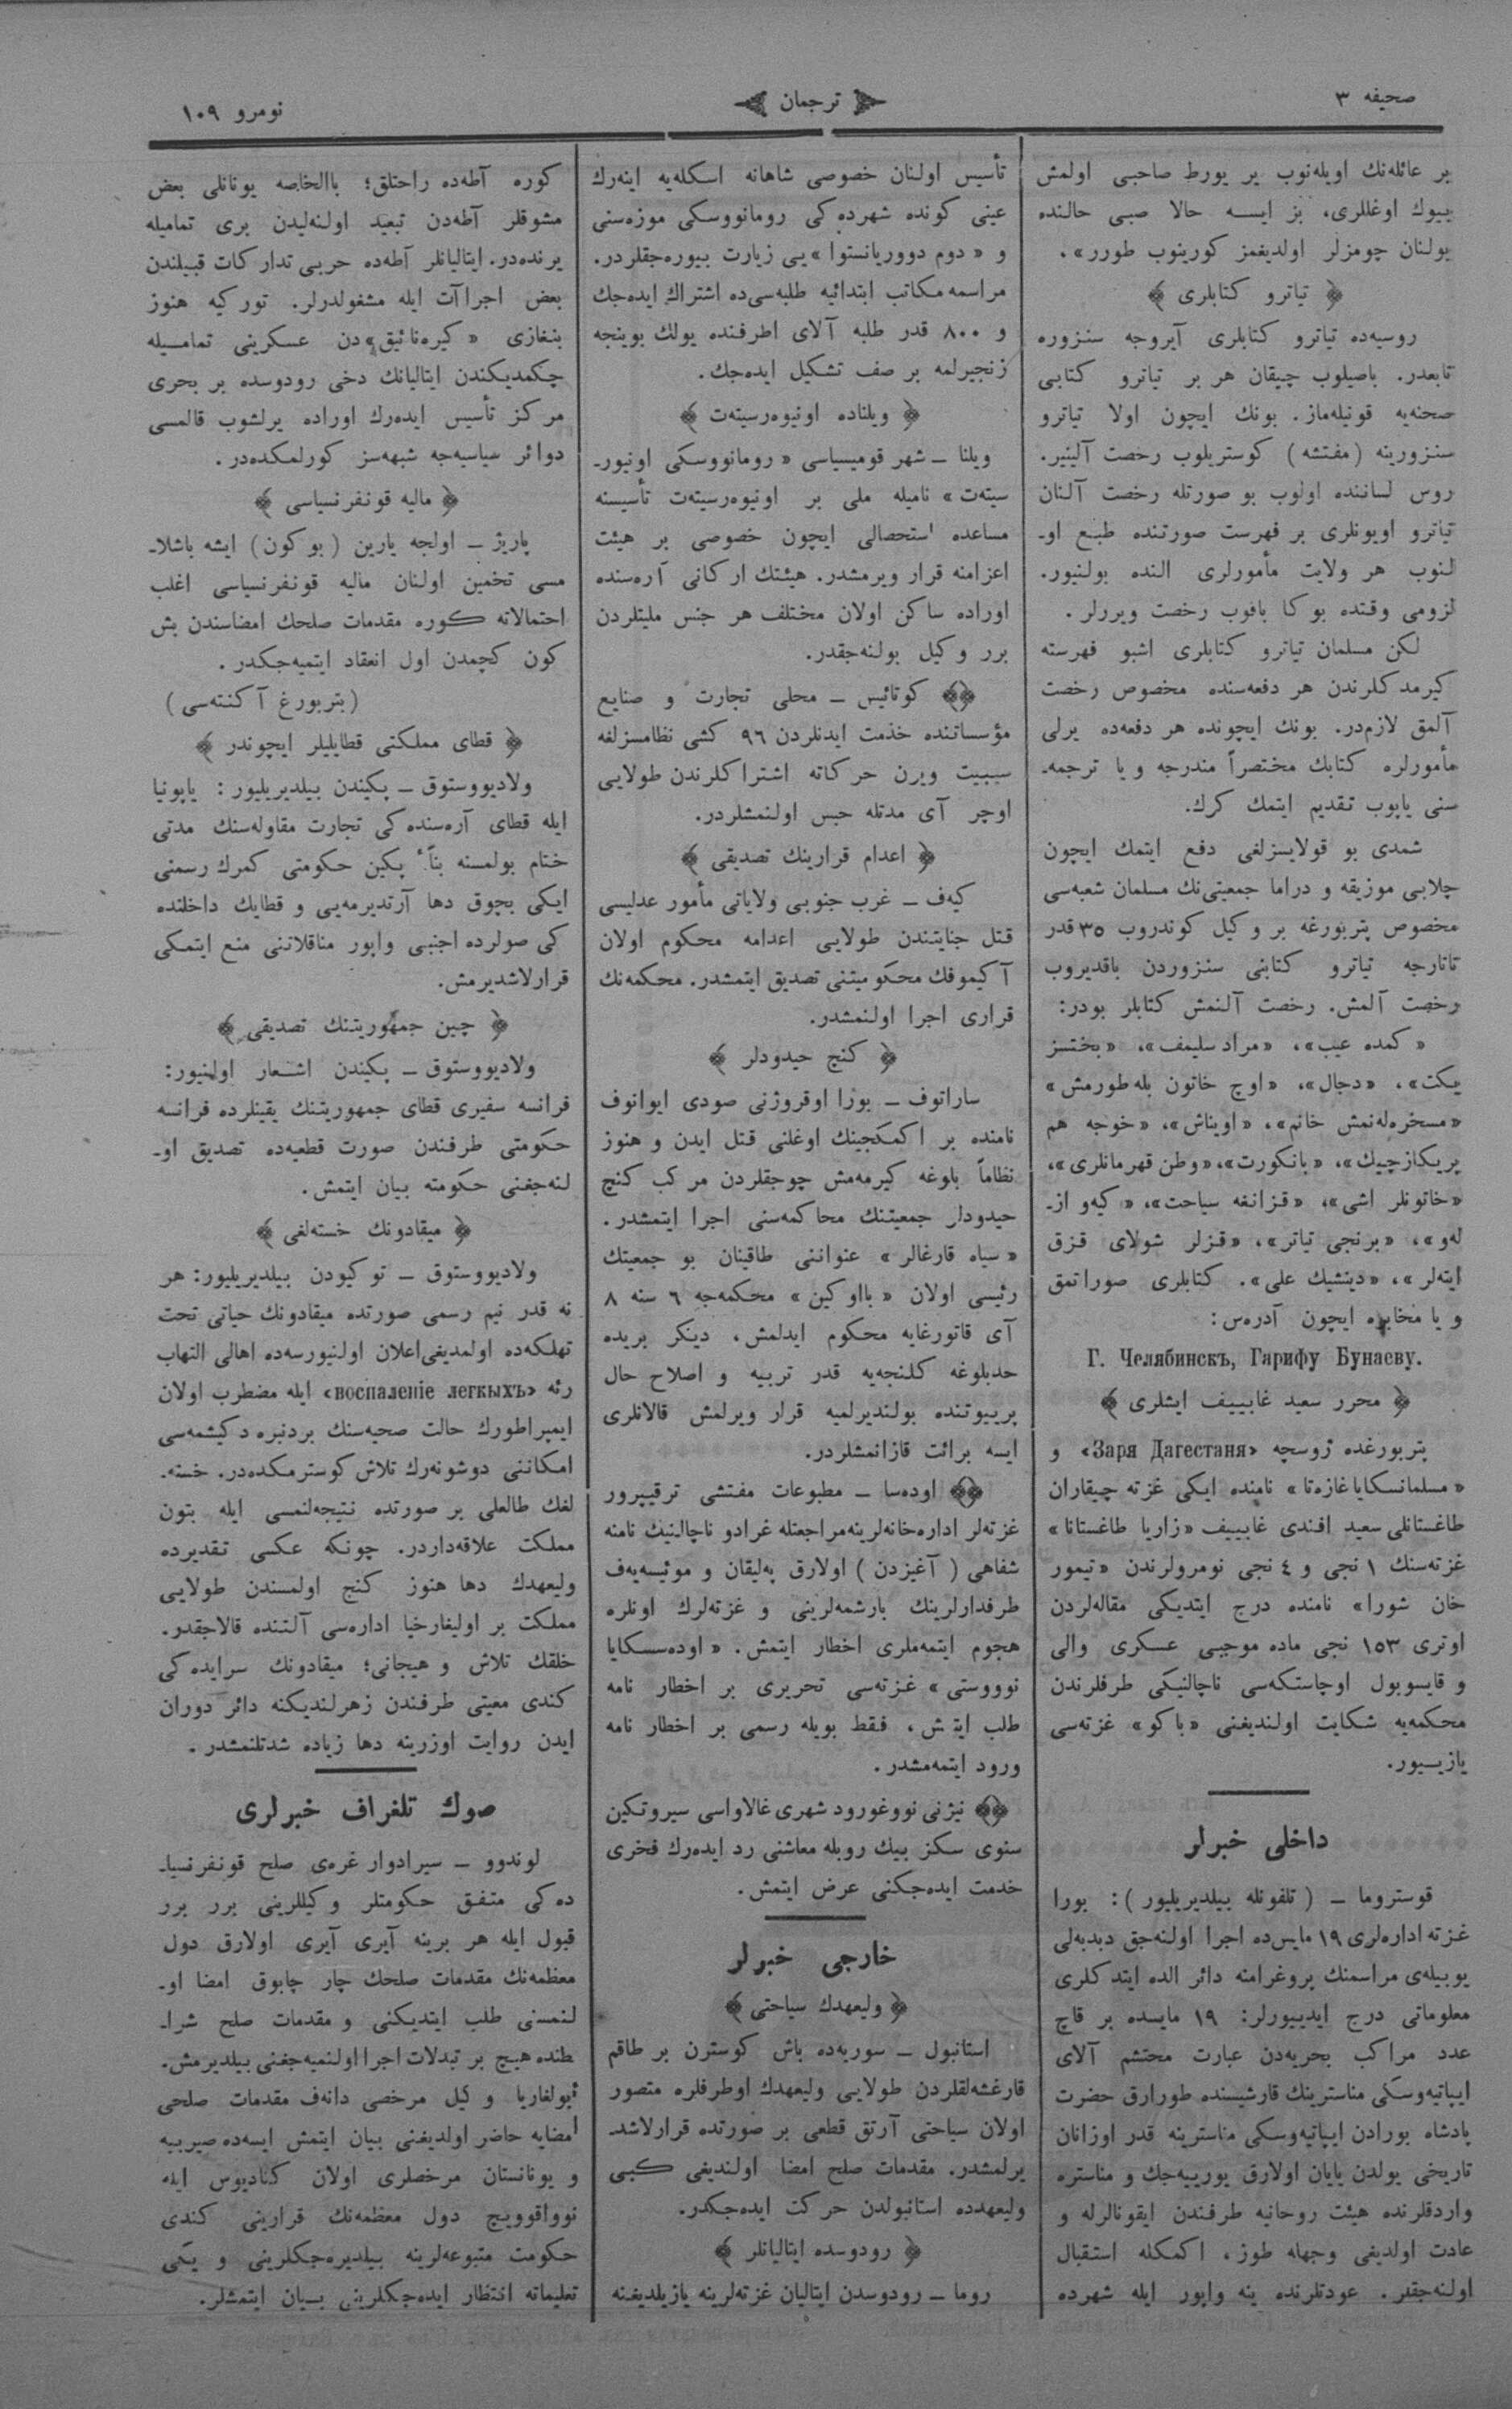 صحیفه ٣
ترجمان
نومرو ١٠٩
بر عائله‌نك اویله‌نوب یر یورط صاحبی اولمش
بیوك اوغللری، بز ایسه حالا صبی حالنده
بولنان چومزلر اولدیغمز كورینوب طورر».
﴿ تیاترو كتابلری ﴾
روسیه‌ده تیاترو كتابلری آیروجه سنزوره
تابعدر. باصیلوب چیقان هر بر تیاترو كتابی
صحنه‌یه قونیله‌ماز. بونك ایچون اولا تیاترو
سنزورینه (مفتشه) كوستریلوب رخصت آلینیر.
روس لساننده اولوب بو صورتله رخصت آلنان
تیاترو اویونلری بر فهرست صورتنده طبع او-
لنوب هر ولایت مأمورلری النده بولنیور.
لزومی وقتده بوكا باقوب رخصت ویررلر.
لكن مسلمان تیاترو كتابلری اشبو فهرسته
كیرمدكلرندن هر دفعه‌سنده مخصوص رخصت
آلمق لازم‌در. بونك ایچونده هر دفعه‌ده یرلی
مأمورلره كتابك مختصراً مندرجه و یا ترجمه-
سنی یاپوب تقدیم ایتمك كرك.
شمدی بو قولایسزلغی دفع ایتمك ایچون
چلابی موزیقه و دراما جمعیتی‌نك مسلمان شعبه‌سی
مخصوص پتربورغه بر وكیل كوندروب ٣٥ قدر
تاتارجه تیاترو كتابنی سنزوردن باقدیروب
رخصت آلمش. رخصت آلنمش كتابلر بودر:
«كمده عیب»، «مراد سلیمف»، «بختسز
یكت»، «دجال»، «اوچ خاتون بله طورمش»
«مسخره‌له‌نمش خانم»، «اویناش»، «خوجه هم
پریكازچیك»، «بانكورت»، «وطن قهرمانلری»،
«خاتونلر اشی»، «قزانغه سیاحت»، «كیه‌و از-
له‌و»، «برنجی تیاتر»، «قزلر شولای قزق
ایته‌لر»، «دینشیك علی». كتابلری صوراتمق
و یا مخابره ایچون آدره‌س:
Г. Челябинскъ, Гарифу Бунаеву.
﴿ محرر سعید غابییف ایشلری ﴾
پتربورغده ژوسچه «Заря Дагестаня» و
«مسلمانسكایا غازه‌تا» نامنده ایكی غزته چیقاران
طاغستانلی سعید افندی غابییف «زاریا طاغستانا»
غزته‌سنك ١ نجی و ٤ نجی نومرولرندن «تیمور
خان شورا» نامنده درج ایتدیكی مقاله‌لردن
اوتری ١٥٣ نجی ماده موجبی عسكری والی
و قایسوبول اوچاستكه‌سی ناچالنیكی طرفلرندن
محكمه‌یه شكایت اولندیغنی «باكو» غزته‌سی
یازییور.
داخلی خبرلر
قوستروما – (تلفونله بیلدیریلیور): بورا
غزته اداره‌لری ١٩ مایس‌ده اجرا اولنه‌جق دبدبه‌لی
یوبیله‌ی مراسمنك پروغرامنه دائر الده ایتدكلری
معلوماتی درج ایدییورلر: ١٩ مایسده بر قاچ
عدد مراكب بحریه‌دن عبارت محتشم آلای
ایپاتیه‌وسكی مناسترینك قارشیسنده طورارق حضرت
پادشاه بورادن ایپاتیه‌وسكی مناسترینه قدر اوزانان
تاریخی یولدن یایان اولارق یورییه‌جك و مناستره
واردقلرنده هیئت روحانیه طرفندن ایقونالرله و
عادت اولدیغی وجهله طوز، اكمكله استقبال
اولنه‌جقدر. عودتلرنده ینه واپور ایله شهرده
تأسیس اولنان خصوصی شاهانه اسكله‌یه اینه‌رك
عینی كونده شهرده‌كی رومانووسكی موزه‌سنی
و «دوم دووریانستوا»یی زیارت بیوره‌جقلردر.
مراسمه مكاتب ابتدائیه طلبه‌سی‌ده اشتراك ایده‌جك
و ٨٠٠ قدر طلبه آلای اطرفنده یولك بوینجه
زنجیرلمه بر صف تشكیل ایده‌جك.
﴿ ویلناده اونیوه‌رسیته‌ت ﴾
ویلنا – شهر قومیسیاسی «رومانووسكی اونیور-
سیته‌ت» نامیله ملی بر اونیوه‌رسیته‌ت تأسیسنه
مساعده استحصالی ایچون خصوصی بر هیئت
اعزامنه قرار ویرمشدر. هیئتك اركانی آره‌سنده
اوراده ساكن اولان مختلف هر جنس ملیتلردن
برر وكیل بولنه‌جقدر.
كوتائیس – محلی تجارت و صنایع
مؤسساتنده خذمت ایدنلردن ٩٦ كشی نظامسزلغه
سببیت ویرن حركاته اشتراكلرندن طولایی
اوچر آی مدتله حبس اولنمشلردر.
﴿ اعدام قرارینك تصدیقی ﴾
كیه‌ف – غرب جنوبی ولایاتی مأمور عدلیسی
قتل جنایتندن طولایی اعدامه محكوم اولان
آكیموفك محكومیتنی تصدیق ایتمشدر. محكمه‌نك
قراری اجرا اولنمشدر.
﴿ كنج حیدودلر ﴾
ساراتوف – بورا اوقروژنی صودی ایوانوف
نامنده بر اكمكجینك اوغلنی قتل ایدن و هنوز
نظاماً بلوغه كیرمه‌مش چوجقلردن مركب كنج
حیدودلر جمعیتنك محاكمه‌سنی اجرا ایتمشدر.
«سیاه قارغالر» عنواننی طاقینان بو جمعیتك
رئیسی اولان «بااوكین» محكمه‌جه ٦ سنه ٨
آی قاتورغایه محكوم ایدلمش، دیكر بریده
حدبلوغه كلنجه‌یه قدر تربیه و اصلاح حال
پرییوتنده بولندیرلمیه قرار ویرلمش قالانلری
ایسه برائت قازانمشلردر.
اوده‌سا – مطبوعات مفتشی ترقیپرور
غزته‌لر اداره‌خانه‌لرینه‌مراجعتله غرادو ناچالنیك نامنه
شفاهی (آغیزدن) اولارق په‌لیقان و موئیسه‌یه‌ف
طرفدارلرینك بارشمه‌لرینی و غزته‌لرك اونلره
هجوم ایتمه‌ملری اخطار ایتمش. «اوده‌سسكایا
نووستی» غزته‌سی تحریری بر اخطار نامه
طلب ایتمش، فقط بویله رسمی بر اخطار نامه
ورود ایتمه‌مشدر.
نیژنی نووغورود شهری غالاواسی سیروتكین
سنوی سكز بیك روبله معاشنی رد ایده‌رك فخری
خدمت ایده‌جكنی عرض ایتمش.
خارجی خبرلر
﴿ ولیعهدك سیاحتی ﴾
استانبول – سوریه‌ده باش كوسترن بر طاقم
قارغشه‌لقلردن طولایی ولیعهدك اوطرفلره متصور
اولان سیاحتی آرتق قطعی بر صورتده قرارلاشد-
یرلمشدر. مقدمات صلح امضا اولندیغی كبی
ولیعهدده استانبولدن حركت ایده‌جكدر.
﴿ رودوسده ایتالیانلر ﴾
روما – رودوسدن ایتالیان غزته‌لرینه یازیلدیغنه
كوره آطه‌ده راحتلق؛ باالخاصه یونانلی بعض
مشوقلر آطه‌دن تبعید اولنه‌لیدن بری تمامیله
یرنده‌در. ایتالیانلر آطه‌ده حربی تداركات قبیلندن
بعض اجراآت ایله مشغولدرلر. توركیه هنوز
بنغازی «كیره‌نائیق»دن عسكرینی تمامیله
چكمدیكندن ایتالیانك دخی رودوسده بر بحری
مركز تأسیس ایده‌رك اوراده یرلشوب قالمسی
دوائر سیاسیه‌جه شبهه‌سز كورلمكده‌در.
﴿ مالیه قونفرنسیاسی ﴾
پاریژ – اولجه یارین (بوكون) ایشه باشلا-
مسی تخمین اولنان مالیه قونفرنسیاسی اغلب
احتمالاته كوره مقدمات صلحك امضاسندن بش
كون كچمدن اول انعقاد ایتمیه‌جكدر.
(پتربورغ آكنته‌سی)
﴿ قطای مملكتی قطایلیلر ایچوندر ﴾
ولادیووستوق – پكیندن بیلدیریلیور: یاپونیا
ایله قطای آره‌سنده‌كی تجارت مقاوله‌سنك مدتی
ختام بولمسنه بناً پكین حكومتی كمرك رسمنی
ایكی بچوق دها آرتدیرمه‌یی و قطایك داخلنده
كی صولرده اجنبی واپور مناقلاتنی منع ایتمكی
قرارلاشدیرمش.
﴿ چین جمهوریتنك تصدیقی ﴾
ولادیووستوق – پكیندن اشعار اولنیور:
فرانسه سفیری قطای جمهوریتنك یقینلرده فرانسه
حكومتی طرفندن صورت قطعیه‌ده تصدیق او-
لنه‌جغنی حكومته بیان ایتمش.
﴿ میقادونك خسته‌لغی ﴾
ولادیووستوق – توكیودن بیلدیریلیور: هر
نه قدر نیم رسمی صورتده میقادونك حیاتی تحت
تهلكه‌ده اولمدیغی‌اعلان اولنیورسه‌ده اهالی التهاب
رئه «воспаленіе легкыхъ» ایله مضطرب اولان
ایمپراطورك حالت صحیه‌سنك بردنبره دكیشمه‌سی
امكاننی دوشونه‌رك تلاش كوسترمكده‌در. خسته-
لغك طالعلی بر صورتده نتیجه‌لنمسی ایله بتون
مملكت علاقه‌داردر. چونكه عكسی تقدیرده
ولیعهدك دها هنوز كنج اولمسندن طولایی
مملكت بر اولیغارخیا اداره‌سی آلتنده قالاجقدر.
خلقك تلاش و هیجانی؛ میقادونك سرایده‌كی
كندی معیتی طرفندن زهرلندیكنه دائر دوران
ایدن روایت اوزرینه دها زیاده شدتلنمشدر.
صوك تلغراف خبرلری
لوندوو – سیرادوار غره‌ی صلح قونفرنسیا-
ده‌كی متفق حكومتلر وكیللرینی برر برر
قبول ایله هر برینه آیری آیری اولارق دول
معظمه‌نك مقدمات صلحك چار چابوق امضا او-
لنمسنی طلب ایتدیكنی و مقدمات صلح شرا-
طنده هیچ بر تبدلات اجرا اولنمیه‌جغنی بیلدیرمش.
بولغاریا وكیل مرخصی دانه‌ف مقدمات صلحی
امضایه حاضر اولدیغنی بیان ایتمش ایسه‌ده صیربیه
و یونانستان مرخصلری اولان كنادیوس ایله
نوواقوویچ دول معظمه‌نك قرارینی كندی
حكومت متبوعه‌لرینه بیلدیره‌جكلرینی و یكی
تعلیماته انتظار ایده‌جكلرینی بیان ایتمشلر.